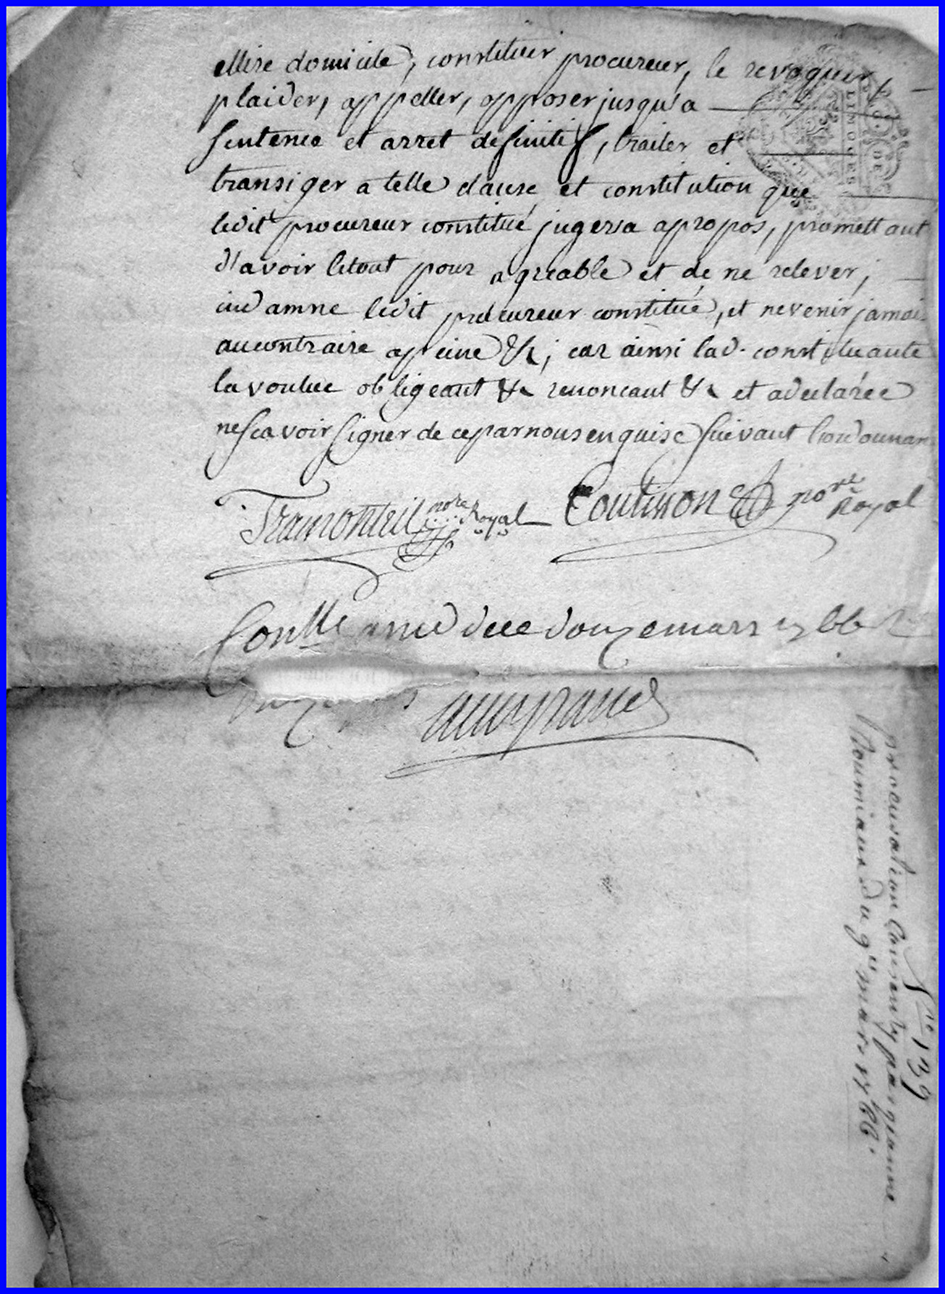 ellire domicile, constituer procureur, le revoquer,
plaider, appeller, opposer jusqu'a
sentence et arret definitif, traiter et
transiger a telle clause, et constitution que
ledit procureur constitué jugera apropos, promettant
d'avoir letout pour agreable et de ne relever,
indamne ledit procureur constitué, et nevenir jamais
aucontraire apeine &c, car ainsi lad. constituante
la voulue obligeant &c renoncant &c et adeclarée
nescavoir signer de ceparnousenquise suivant lordonnan
Tramonteil nore Royal Coutinon nore Royal
Conlle mil dece douze mars 1766
procuration Consenty par jeanne
du 9e mars 1766.
N° 139
LIMOGES
G. DE